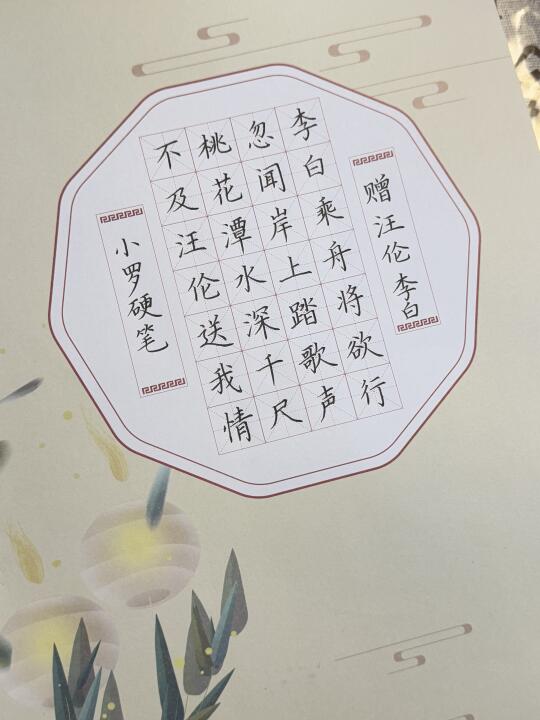 赠汪伦 李白
李白乘舟将欲行
忽闻岸上踏歌声
桃花潭水深千尺
不及汪伦送我情
小罗硬笔